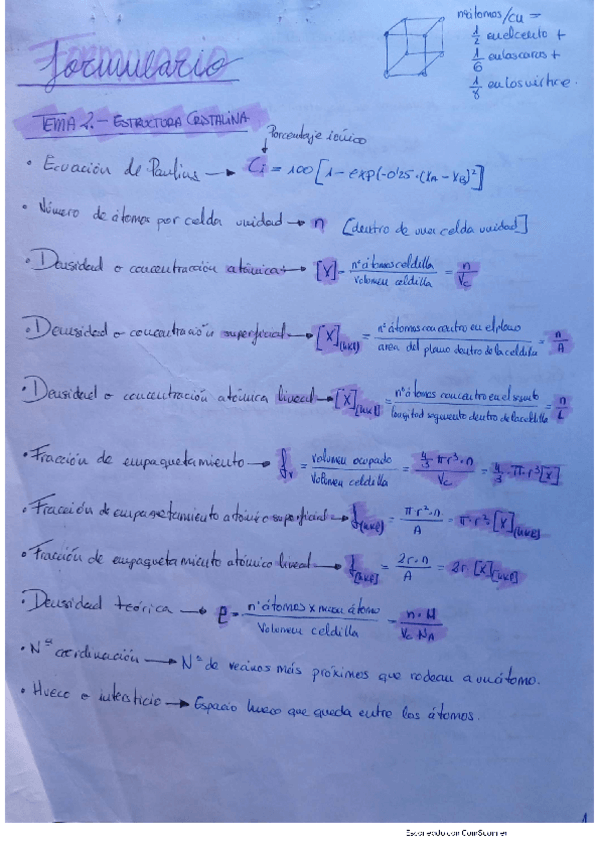 Formulario
nº átomos/cu =
1/2 en el cento +
1/6 en las caras +
1/8 en los vértice.
TEMA 2.- ESTRUCTURA CRISTALINA
Porcentaje iónico
• Ecuación de Paulins → Ci = 100 [1 - exp(-0'25·(XA - XB)²]
• Número de átomos por celda unidad → n [dentro de una celda unidad]
• Densidad o concentracción atómica → [X] = nº átomos celdilla / volumen celdilla = n / Vc
• Densidad o concentración superficial → [X](hkl) = nº átomos con centro en el plano / area del plano dentro de la celdilla = n / A
• Densidad o concentración atómica lineal → [X][hkl] = nº átomos con centro en el segmento / longitud segmento dentro de la celdilla = n / L
• Fracción de empaquetamiento → fv = volumen ocupado / volumen celdilla = 4/3 πr³·n / Vc = 4/3·π·r³[X]
• Fracción de empaquetamiento atómico superficial → f(hkl) = π·r²·n / A = π·r²[X](hkl)
• Fracción de empaquetamiento atómico lineal → f[hkl] = 2r·n / A = 2r·[X][hkl]
• Densidad teórica → ρ = nº átomos x masa átomo / Volumen celdilla = n·M / Vc NA
• Nº coordinación → Nº de vecinos más próximos que rodean a un átomo.
• Hueco o intersticio → Espacio hueco que queda entre los átomos.
1
Escaneado con CamScanner